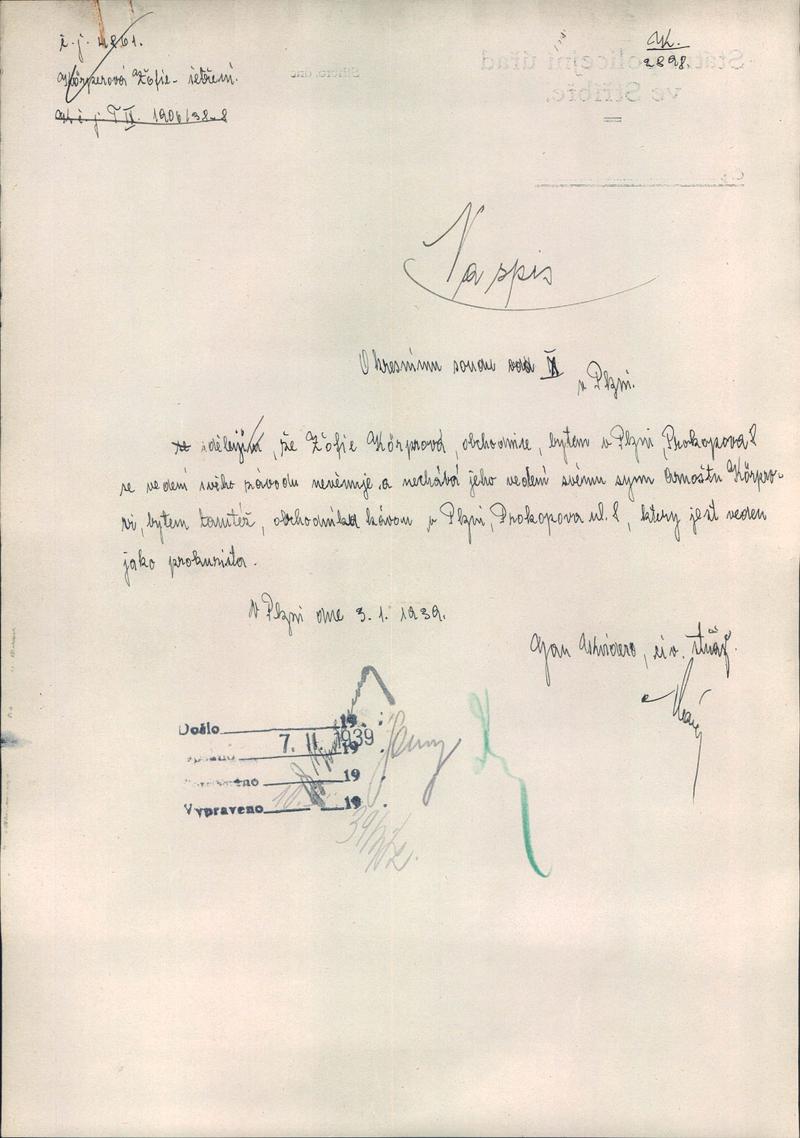 č. j. 4861.
Körperová Žofie - šetření.
č. j. T II. 1906/38-8
2898.
Státní policejní úřad
ve Stříbře.
Stříbro, dne
Č. j.
Na spis
Okresnímu soudu odd II
v Plzni.
sdělujím, že Žofie Körprová, obchodnice, bytem v Plzni, Prokopova 2
se vedení svého závodu nevěnuje a nechává jeho vedení svému synu Arnoštu Körpro-
vi, bytem tamtéž, obchodníku kávou v Plzni, Prokopova ul. 2, který jest veden
jako prokurista.
V Plzni dne 3. 1. 1939.
Jan, civ. stráž.
Došlo 19
7. II. 1939
19
19
Vypraveno 19